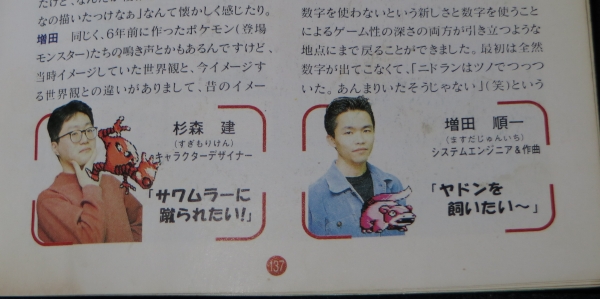 なの描いたっけなぁ」なんて懐かしく感じたり。
増田 同じく、6年前に作ったポケモン(登場
モンスター)たちの鳴き声とかもあるんですけど、
当時イメージしていた世界観と、今イメージす
る世界観との違いがありまして、昔のイメー
数字を使わないという新しさと数字を使うこと
によるゲーム性の深さの両方が引き立つような
地点にまで戻ることができました。最初は全然
数字が出てこなくて、「ニドランはツノでつっつ
いた。あんまりいたそうじゃない」(笑)という
杉森 建
(すぎもりけん)
キャラクターデザイナー
「サワムラーに
蹴られたい!」
増田 順一
(ますだじゅんいち)
システムエンジニア&作曲
「ヤドンを
飼いたい〜」
137